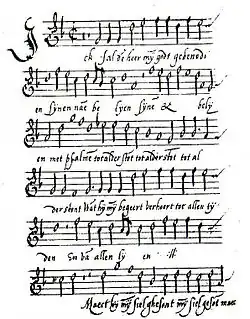 Ick sal dē heer mÿ godt gebenedi
en sÿnen nae be lyen sÿne & belÿ
en met psalme totalder stot totalderstot tot al
derstont Wat hÿ mÿ begeert verhoert tot allen tÿ
den En vā allen lÿ en :||:
Maect hÿ mÿ siel ghesont mÿ siel gesot maec